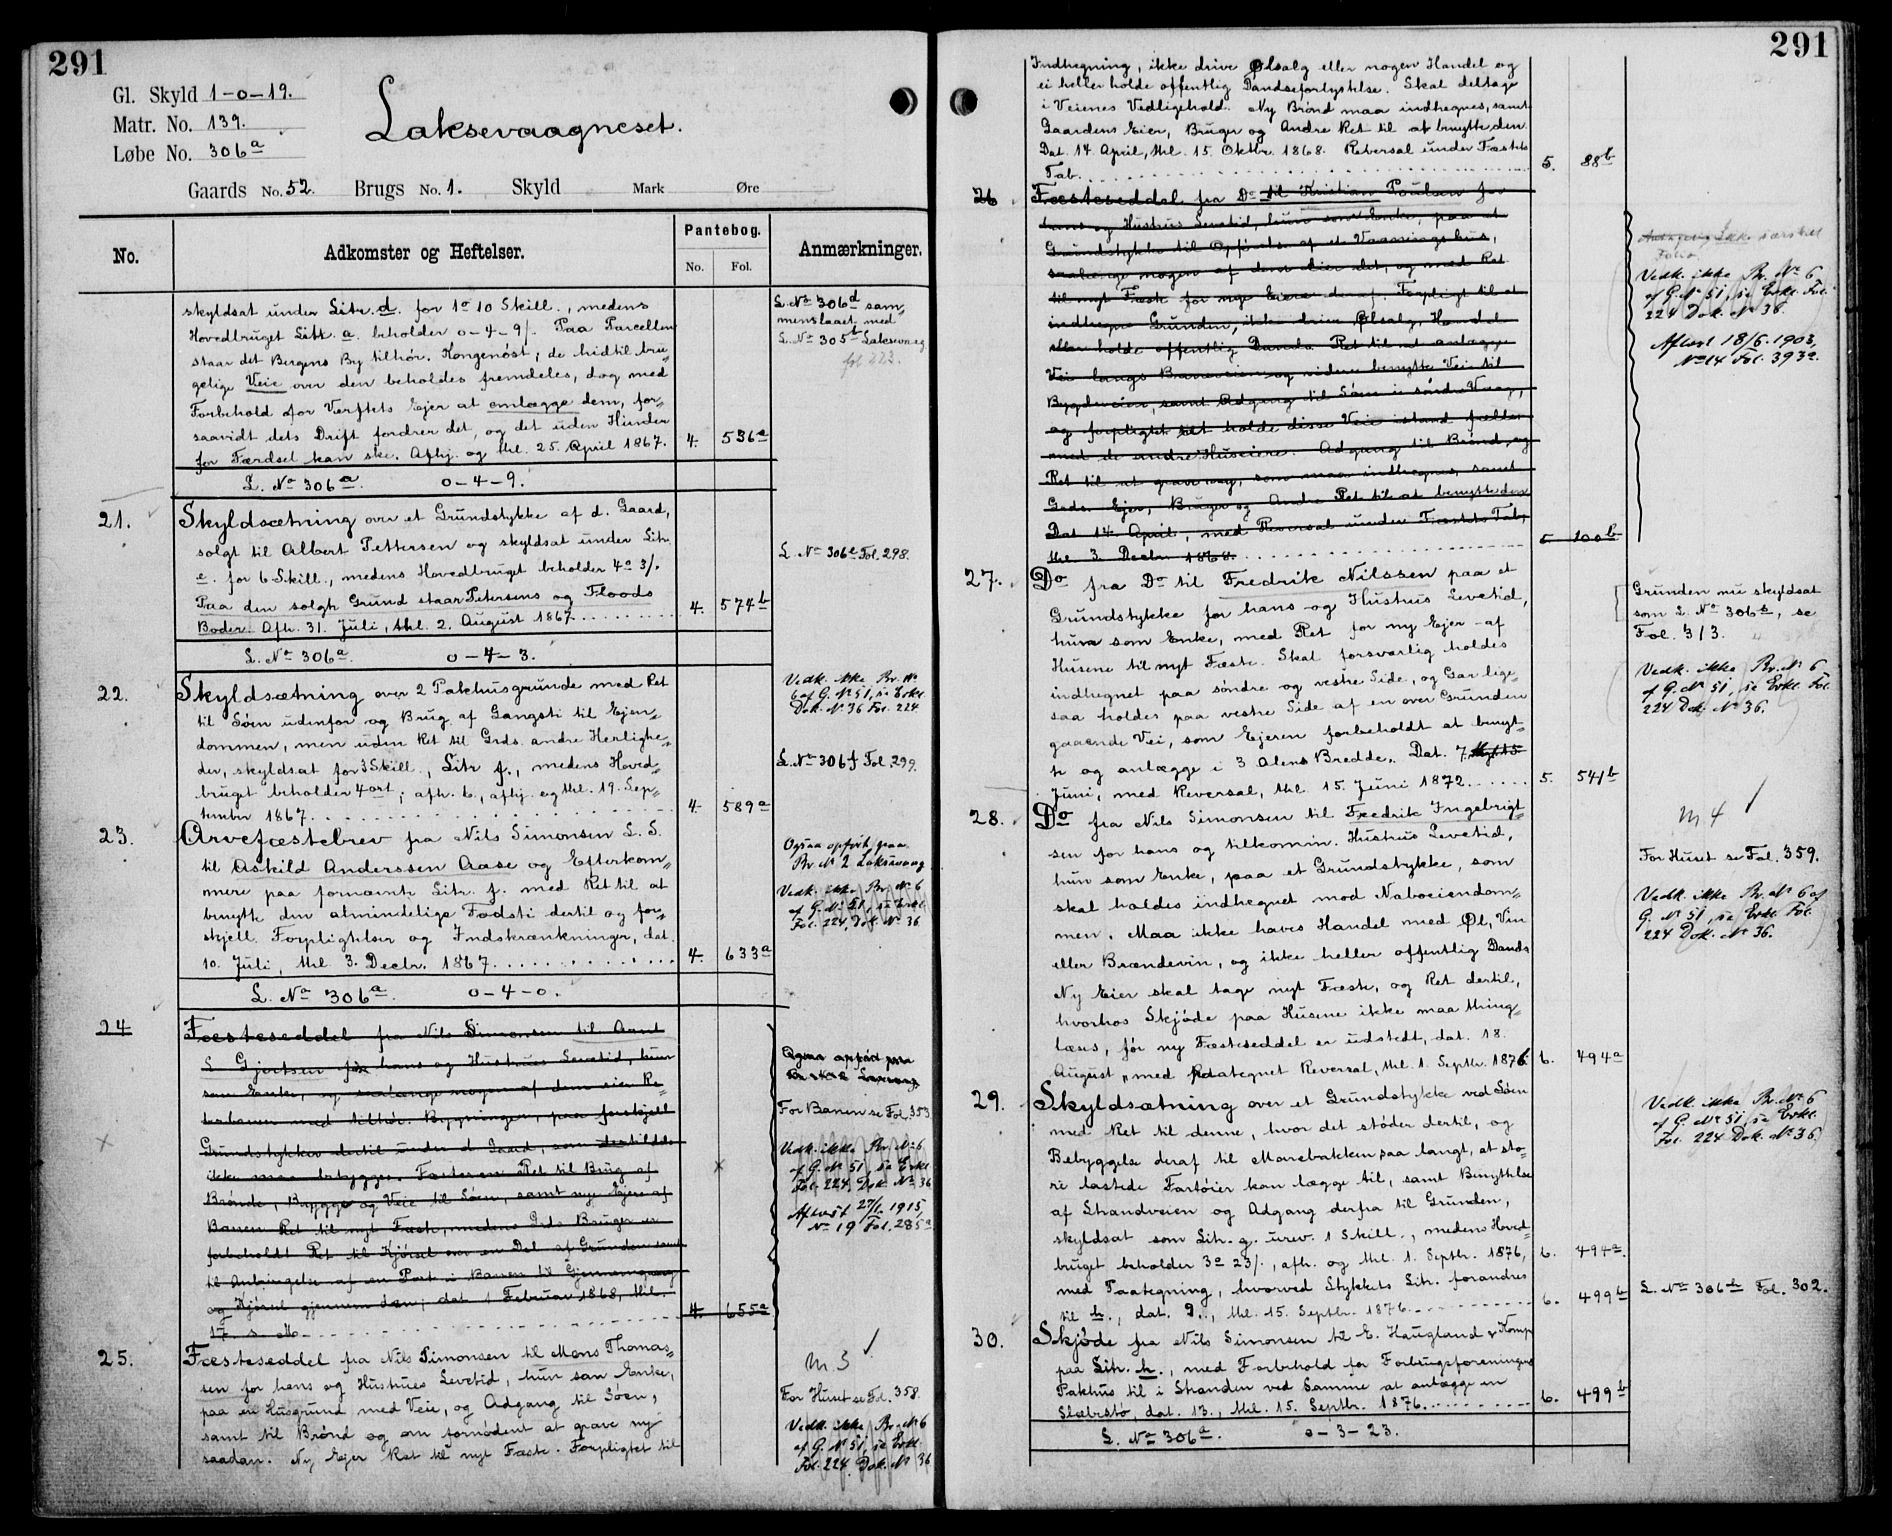 291
Gl. Skyld 1-0-19.
Matr. No. 139.
Løbe No. 306a
Laksevaagneset.
Gaards No. 52. Brugs No. 1. Skyld Mark Øre
No. Adkomster og Heftelser. Pantebog. No. Fol. Anmærkninger.
skyldsat under Litr. d. for 1o 10 Skill., medens
Hovedbruget Litr. a. beholder 0-4-9/. Paa Parcellen
staar det Bergens By tilhør. Kongenøst; de hidtil bru-
gelige Veie over den beholdes fremdeles, dog med
Forbehold for Verftets Ejer at omlægge dem, for-
saavidt dets Drift fordrer det, og det uden Hinder
for Færdsel kan ske. Afhj. og thl. 25. April 1867. 4. 536a
L. No 306d sam-
menslaaet med
L. No 305b Laksevaag
fol 223.
L. No 306a. 0-4-9.
21. Skyldsætning over et Grundstykke af d. Gaard,
solgt til Albert Pettersen og skyldsat under Litr.
e. for 6 Skill., medens Hovedbruget beholder 4o 3/.
Paa den solgte Grund staar Petersens og Floods
Boder. Afh. 31. Juli, thl. 2. August 1867. 4. 574b
L. No 306e Fol. 298.
L. No 306a. 0-4-3.
22. Skyldsætning over 2 Pakhusgrunde med Ret
til Søen udenfor og Brug af Gangsti til Ejen-
dommen, men uden Ret til Grds. andre Herlighe-
der, skyldsat for 3 Skill., Litr f., medens Hoved-
bruget beholder 4 ort; afh. 6., afhj. og thl. 19. Sep-
tember 1867. 4. 589a
Vedk. ikke Br. No
6 af G. No 51, se Erkl.
Dok. No 36 Fol. 224.
L. No 306f Fol. 299.
23. Arvefæstebrev fra Nils Simonsen L. S.
til Askild Anderssen Aase og Efterkom-
mere paa fornævnte Litr. f. med Ret til at
benytte den almindelige Fodsti dertil og for-
skjell. Forpligtelser og Indskrænkninger, dat.
10. Juli, thl. 3. Decbr. 1867. 4. 633a
Ogsaa opført paa
Br. No 2 Laksevaag
Vedk. ikke Br. No 6
af G. No 51, se Erkl.
Fol. 224, Dok. No 36
L. No 306a. 0-4-0.
24 Fæsteseddel fra Nils Simonsen til Arnt
L Gjertsen for hans og Hustrues Levetid, hun
som Enke, og saalænge nogen af dem eier Re-
berbanen med tilhør. Bygninger, paa forskjell
Grundstykker dertil under d Gaard, som dertildels
ikke maa bebygges. Fæsteren Ret til Brug af
Brønde, Brygge og Veie til Søen, samt nye Ejere af
Banen Ret til nyt Fæste, medens Grds Bruger er
forbeholdt Ret til Kjørsel over en Del af Grunden samt
til Anbringelse af en Port i Banen til Gjennemgang
og Kjørsel gjennem den; dat. 1 Februar 1868, thl.
17. s. M. 4. 655a
Ogsaa opført paa
For Banen se Fol. 353
Vedk. ikke Br. No 6
af G. No 51, se Erkl.
Fol. 224, Dok. No 36
Aflyst 27/1. 1915,
No 19 Fol. 285a.
25. Fæsteseddel fra Nils Simonsen til Mons Thomas-
sen for hans og Hustrues Levetid, hun som Enke,
paa en Husgrund med Veie, og Adgang til Søen,
samt til Brønd og om fornødent at grave ny
saadan. Ny Ejer Ret til nyt Fæste. Forpligtet til
M 3
For Huset se Fol. 358.
Vedk. ikke Br. No 6
af G. No 51, se Erkl.
Fol. 224. Dok. No 36
291
Indhegning, ikke drive Ølsalg eller nogen Handel og
ei heller holde offentlig Dandseforlystelse. Skal deltage
i Veienes Vedligehold. Ny Brønd maa indhegnes, samt
Gaardens Eier, Bruger og Andre Ret til at benytte den.
Dat. 14. April, thl. 15. Oktbr. 1868. Reversal under Fæstets
Tab. 5. 88b
26 Fæsteseddel fra Do til Kristian Poulsen for
hans og Hustrus Levetid, hun som Enke, paa et
Grundstykke til Opførelse af et Vaaningshus,
saalænge nogen af dem eier det, og med Ret
til nyt Fæste for nye Eiere deraf. Forpligt. til at
indhegne Grunden, ikke drive Ølsalg, Handel
eller holde offentlig Dands. Ret til at anlægge
Vei langs Baneveien og videre benytte Vei til
Bygdeveien, samt Adgang til Søen i søndre Vaag,
og forpligtet at holde disse Veie istand fælles
med de andre Huseiere. Adgang til Brønd, og
Ret til at grave ny, som maa indhegnes, samt
Grds. Ejer, Bruger og Andre Ret til at benytte den
Dat 14 April, med Reversal under Fæstets Tab,
thl. 3. Decbr. 1868. 5 100b
særskilt
Folio.
Vedk. ikke Br. No 6
af G. No 51, se Erkl. Fol.
224 Dok. No 36.
Aflyst 18/6. 1903,
No 14 Fol. 393a.
27. Do fra Do til Fredrik Nilssen paa et
Grundstykke for hans og Hustrus Levetid,
hun som Enke, med Ret for ny Ejer af
Husene til nyt Fæste. Skal forsvarlig holdes
indhegnet paa søndre og vestre Side, og Gar lige-
saa holdes paa vestre Side af en over Grunden
gaaende Vei, som Ejeren forbeholdt at benyt-
te og anlægge i 3 Alens Bredde. Dat. 7.
Juni, med Reversal, thl. 15. Juni 1872. 5. 541b
Grunden nu skyldsat
som L. No 306s, se
Fol. 313.
Vedk. ikke Br. No 6
af G. No 51, se Erkl. Fol.
224 Dok. No 36.
28. Do fra Nils Simonsen til Fredrik Ingebrigt-
sen for hans og tilkomm. Hustrus Levetid,
hun som Enke, paa et Grundstykke, som
skal holdes indhegnet mod Naboeiendom-
men. Maa ikke haves Handel med Øl, Vin
eller Brændevin, og ikke heller offentlig Dands
Ny Eier skal tage nyt Fæste, og Ret dertil,
hvorhos Skjøde paa Husene ikke maa thing-
læses, før ny Fæsteseddel er udstedt, dat. 18.
August, med paategnet Reversal, thl. 1. Septbr. 1876. 6. 494a
M. 4
For Huset se Fol. 359.
Vedk. ikke Br. No 6 af
G. No 51, se Erkl. Fol.
224 Dok. No 36.
29. Skyldsætning over et Grundstykke ved Søen
med Ret til denne, hvor det støder dertil, og
Bebyggelse deraf til Marebakken saa langt, at sto-
re lastede Fartøier kan lægge til, samt Benyttelse
af Strandveien og Adgang derfra til Grunden,
skyldsat som Litr. g. urev. 1 Skill., medens Hoved-
bruget beholder 3o 23/., afh. og thl. 1. Septbr. 1876, 6. 494a.
med Paategning, hvorved Stykkets Litr. forandres
til h., dat. 9., thl. 15. Septbr. 1876. 6. 499b
Vedk. ikke Br. No 6
af G. No 51, se Erkl.
Fol. 224 Dok. No 36
L. No 306h Fol. 302.
30. Skjøde fra Nils Simonsen til E. Haugland & Komp.
paa Litr. h., med Forbehold for Forbrugsforeningens
Pakhus til i Stranden ved Samme at anlægge en
Slæbestø, dat. 13., thl. 15. Septbr. 1876. 6. 499b
L. No 306a. 0-3-23.